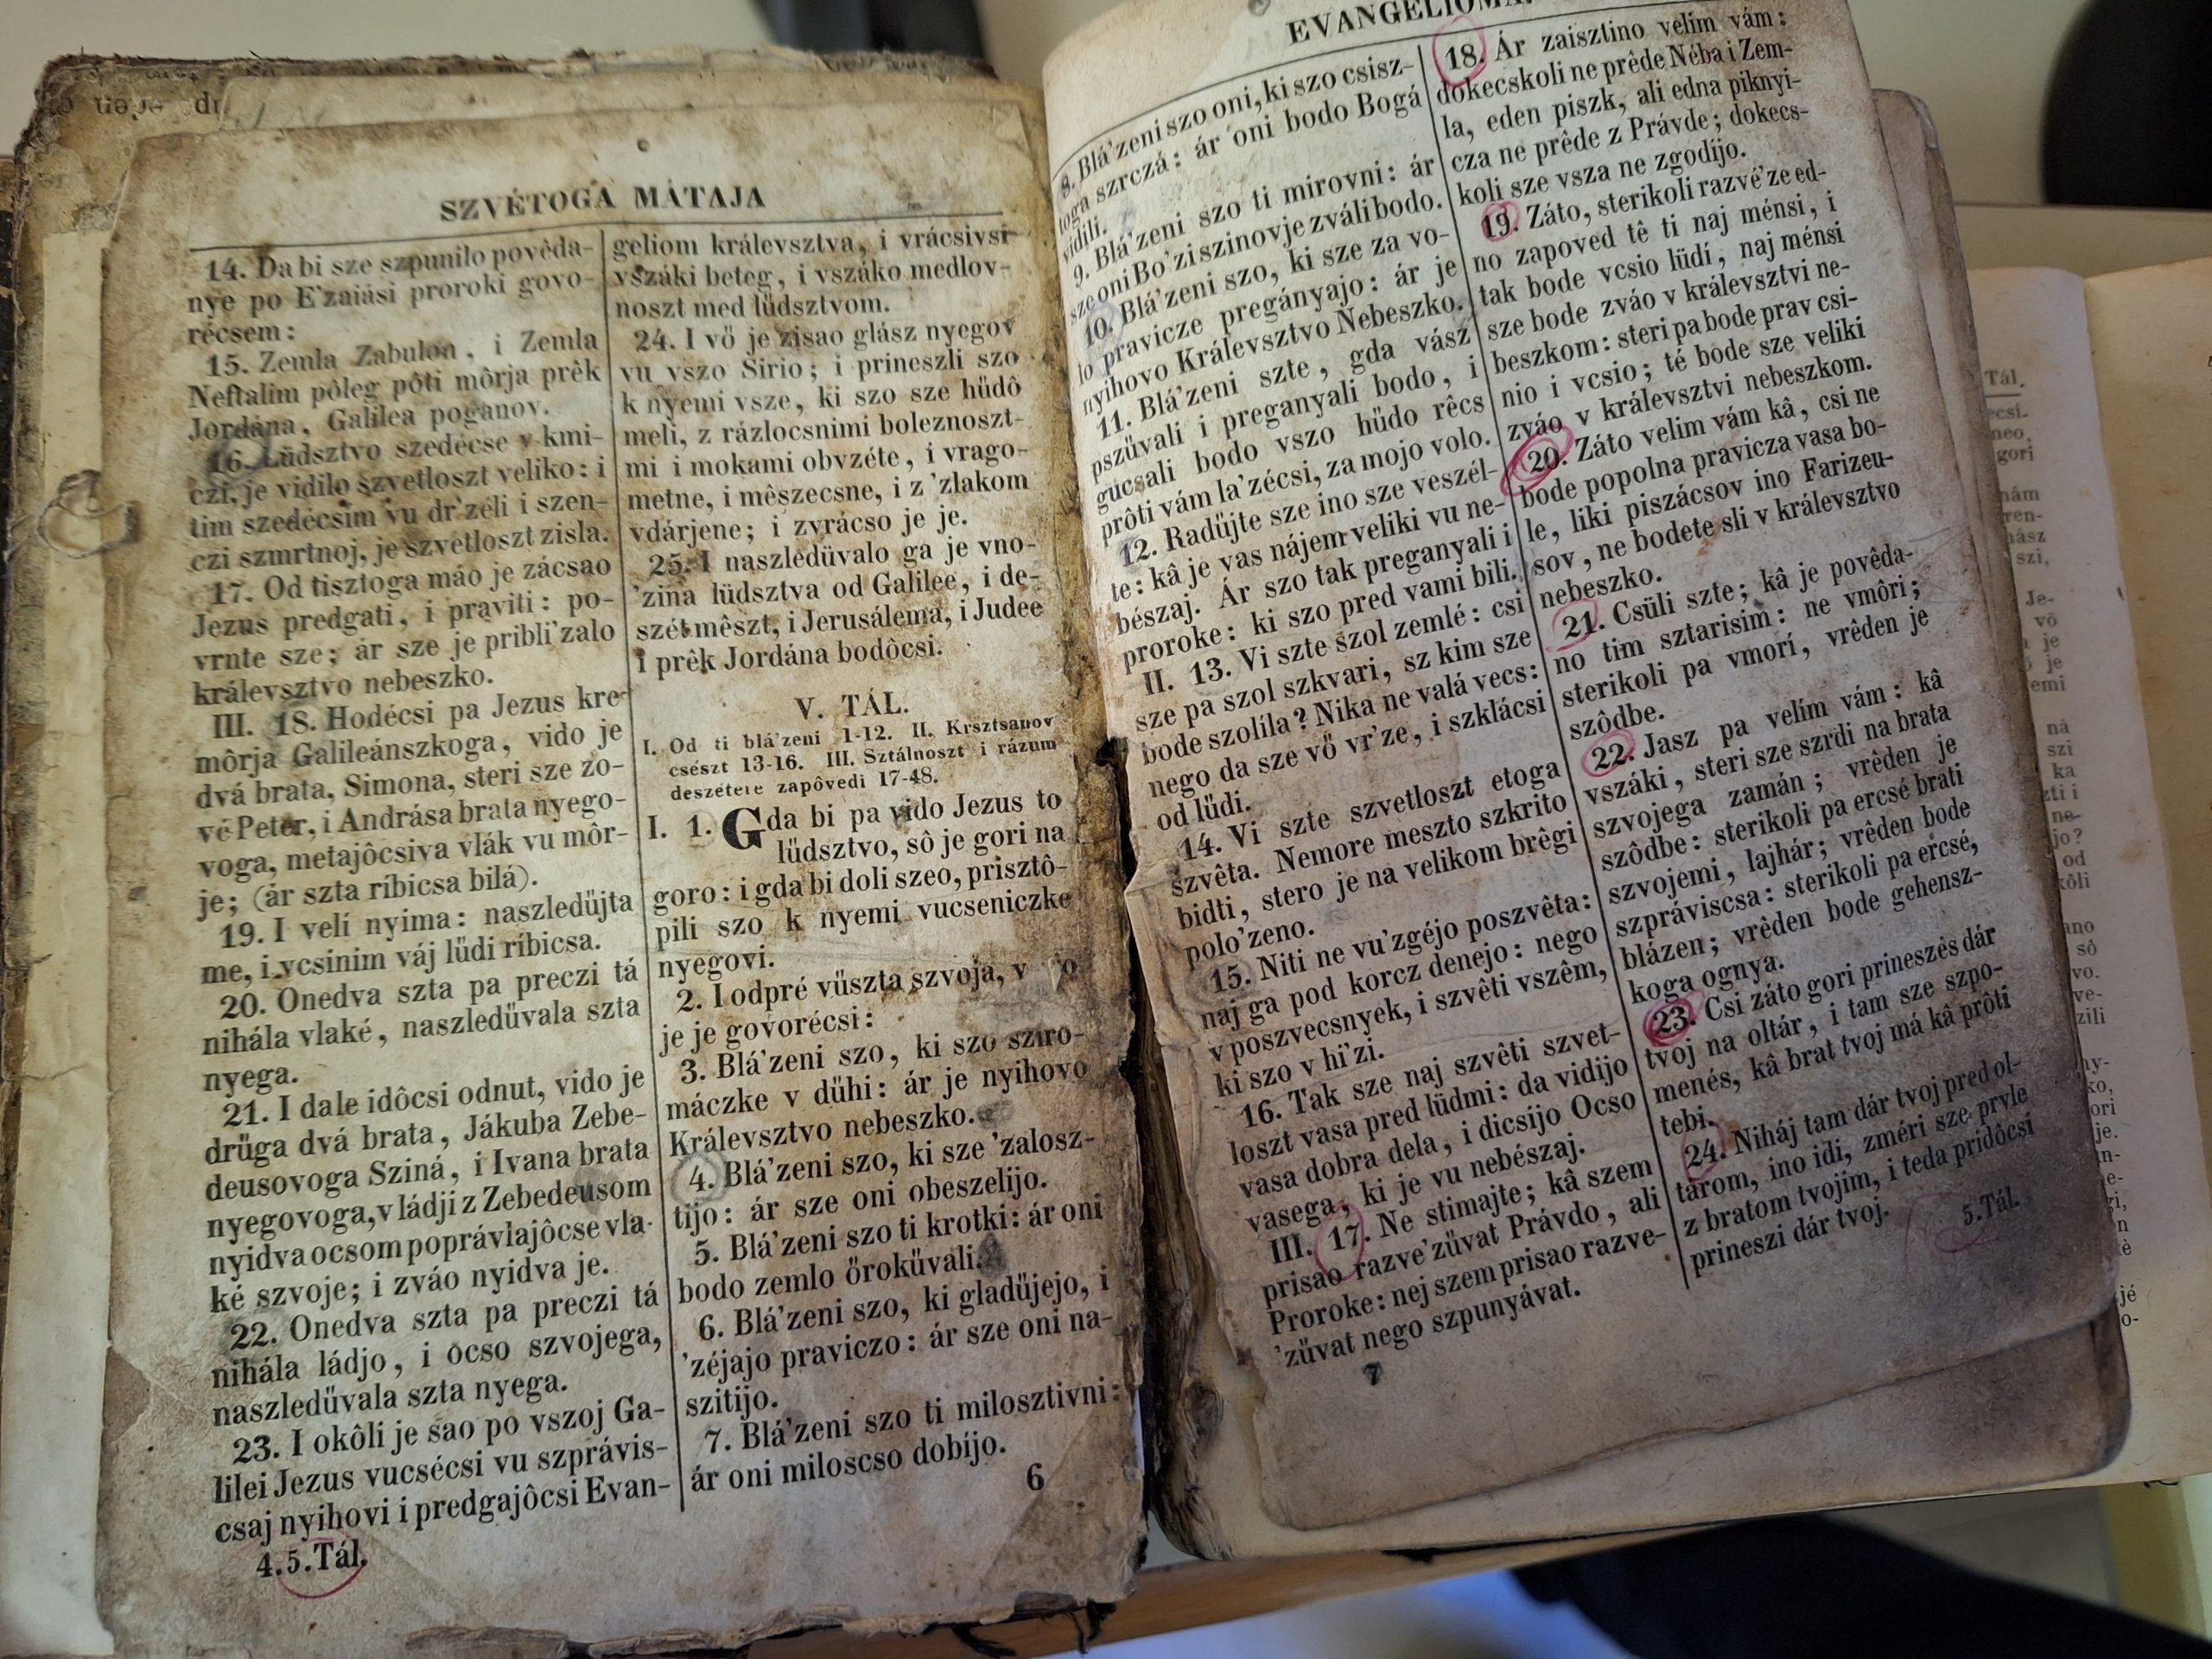 SZVÉTOGA MÁTAJA
14. Da bi sze szpunilo povêda-
nye po E'zaiási proroki govo-
récsem:
15. Zemla Zabulon, i Zemla
Neftalim pôleg pôti môrja prêk
Jordána, Galilea poganov.
16. Lüdsztvo szedécse v kmi-
czi, je vidilo szvetloszt veliko: i
tim szedécsim vu dr'zéli i szen-
czi szmrtnoj, je szvetloszt zisla.
17. Od tisztoga máo je zácsao
Jezus predgati, i praviti: po-
vrnte sze; ár sze je pribli'zalo
králevsztvo nebeszko.
III. 18. Hodécsi pa Jezus kre-
môrja Galileánszkoga, vido je
dvá brata, Simona, steri sze zo-
vé Peter, i Andrása brata nyego-
voga, metajôcsiva vlák vu môr-
je; (ár szta ríbicsa bilá).
19. I velí nyima: naszledüjta
me, i vcsinim váj lüdi ríbicsa.
20. Onedva szta pa preczi tá
nihála vlaké, naszledüvala szta
nyega.
21. I dale idôcsi odnut, vido je
drüga dvá brata, Jákuba Zebe-
deusovoga Sziná, i Ivana brata
nyegovoga, v ládji z Zebedeusom
nyidva ocsom poprávlajôcse vla-
ké szvoje; i zváo nyidva je.
22. Onedva szta pa preczi tá
nihála ládjo, i ocso szvojega,
naszledüvala szta nyega.
23. I okôli je sao po vszoj Ga-
lilei Jezus vucsécsi vu szprávis-
csaj nyihovi i predgajôcsi Evan-
4.5.Tál.
geliom králevsztva, i vrácsivsi
vszáki beteg, i vszáko medlov-
noszt med lüdsztvom.
24. I vö je zisao glász nyegov
vu vszo Sirio; i prineszli szo
k nyemi vsze, ki szo sze hüdô
meli, z rázlocsnimi boleznoszt-
mi i mokami obvzéte, i vrago-
metne, i mêszecsne, i z 'zlakom
vdárjene; i zvrácso je je.
25. I naszledüvalo ga je vno-
'zina lüdsztva od Galilee, i de-
szét mêszt, i Jerusálema, i Judee
i prêk Jordána bodôcsi.
V. TÁL.
I. Od ti blá'zeni 1-12. II. Krsztsanov
csészt 13-16. III. Sztálnoszt i rázum
deszétere zapôvedi 17-48.
I. 1. Gda bi pa vido Jezus to
lüdsztvo, sô je gori na
goro: i gda bi doli szeo, prisztô-
pili szo k nyemi vucseniczke
nyegovi.
2. I odpré vüszta szvoja, v o
je je govorécsi:
3. Blá'zeni szo, ki szo sziro-
máczke v dühi: ár je nyihovo
Králevsztvo nebeszko.
4. Blá'zeni szo, ki sze 'zalosz-
tijo: ár sze oni obeszelijo.
5. Blá'zeni szo ti krotki: ár oni
bodo zemlo öroküvali.
6. Blá'zeni szo, ki gladüjejo, i
'zéjajo praviczo: ár sze oni na-
szitijo.
7. Blá'zeni szo ti milosztivni:
ár oni miloscso dobíjo.
6
EVANGELIOMA.
8. Blá'zeni szo oni, ki szo csisz-
toga szrczá: ár oni bodo Bogá
vidili.
9. Blá'zeni szo ti mirovni: ár
sze oni Bo'zi szinovje zváli bodo.
10. Blá'zeni szo, ki sze za vo-
lo pravicze pregányajo: ár je
nyihovo Králevsztvo Nebeszko.
11. Blá'zeni szte, gda vász
pszüvali i preganyali bodo, i
gucsali bodo vszo hüdo rêcs
prôti vám la'zécsi, za mojo volo.
12. Radüjte sze ino sze veszél-
te: kâ je vas nájem veliki vu ne-
bészaj. Ár szo tak preganyali i
proroke: ki szo pred vami bili.
II. 13. Vi szte szol zemlé: csi
sze pa szol szkvari, sz kim sze
bode szolíla? Nika ne valá vecs:
nego da sze vö vr'ze, i szklácsi
od lüdi.
14. Vi szte szvetloszt etoga
szvêta. Nemore meszto szkrito
bidti, stero je na velikom brêgi
polo'zeno.
15. Niti ne vu'zgéjo poszvêta:
naj ga pod korcz denejo: nego
v poszvecsnyek, i szvêti vszêm,
ki szo v hi'zi.
16. Tak sze naj szvêti szvet-
loszt vasa pred lüdmi: da vidijo
vasa dobra dela, i dicsijo Ocso
vasega, ki je vu nebészaj.
III. 17. Ne stimajte; kâ szem
prisao razve'züvat Právdo, ali
Proroke: nej szem prisao razve-
'züvat nego szpunyávat.
7
18. Ár zaisztino velim vám:
dokecskoli ne prêde Néba i Zem-
la, eden piszk, ali edna piknyi-
cza ne prêde z Právde; dokecs-
koli sze vsza ne zgodíjo.
19. Záto, sterikoli razvé'ze ed-
no zapoved tê ti naj ménsi, i
tak bode vcsio lüdí, naj ménsi
sze bode zváo v králevsztvi ne-
beszkom: steri pa bode prav csi-
nio i vcsio; té bode sze veliki
zváo v králevsztvi nebeszkom.
20. Záto velim vám kâ, csi ne
bode popolna pravicza vasa bo-
le, liki piszácsov ino Farizeu-
sov, ne bodete sli v králevsztvo
nebeszko.
21. Csüli szte; kâ je povêda-
no tim sztarisim: ne vmôri;
sterikoli pa vmorí, vrêden je
szôdbe.
22. Jasz pa velím vám: kâ
vszáki, steri sze szrdi na brata
szvojega zamán; vrêden je
szôdbe: sterikoli pa ercsé brati
szvojemi, lajhár; vrêden bode
szpráviscsa: sterikoli pa ercsé,
blázen; vrêden bode gehensz-
koga ognya.
23. Csi záto gori prineszés dár
tvoj na oltár, i tam sze szpo-
menés, kâ brat tvoj má kâ prôti
tebi.
24. Niháj tam dár tvoj pred ol-
tárom, ino idi, zméri sze prvle
z bratom tvojim, i teda pridôcsi
prineszi dár tvoj.
5.Tál.